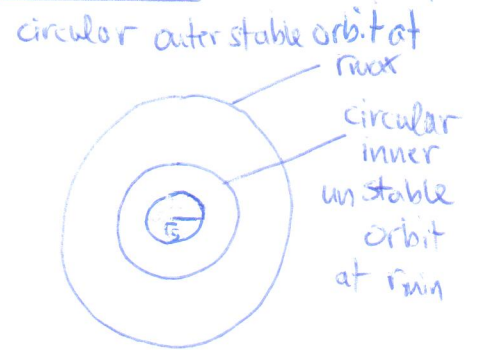 circular outer stable orbit at
rmax
circular
inner
unstable
orbit
at rmin
rs